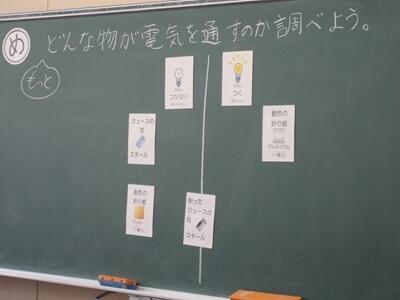 め
どんな物が電気を通すのか調べよう。
もっと
つかない
つく
ジュースの
缶
スチール
銀色の
折り紙
アルミニウム
金色の
折り紙
削った
ジュースの
缶
スチール